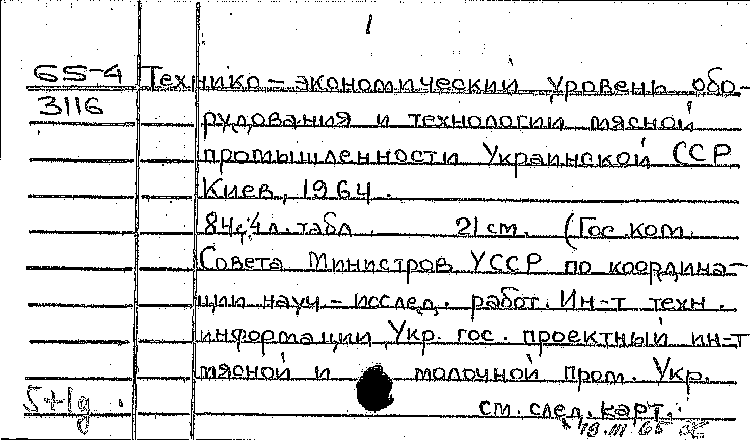 1
65-4 Технико-экономический уровень обо-
3116 рудования и технологии мясной
промышленности Украинской ССР
Киев, 1964.
84с, 4л. табл. 21 см. (Гос. ком.
Совета Министров УССР по координа-
ции науч.-исслед. работ. Ин-т техн.
информации, Укр. гос. проектный ин-т
мясной и молочной пром. Укр.
см. след. карт.